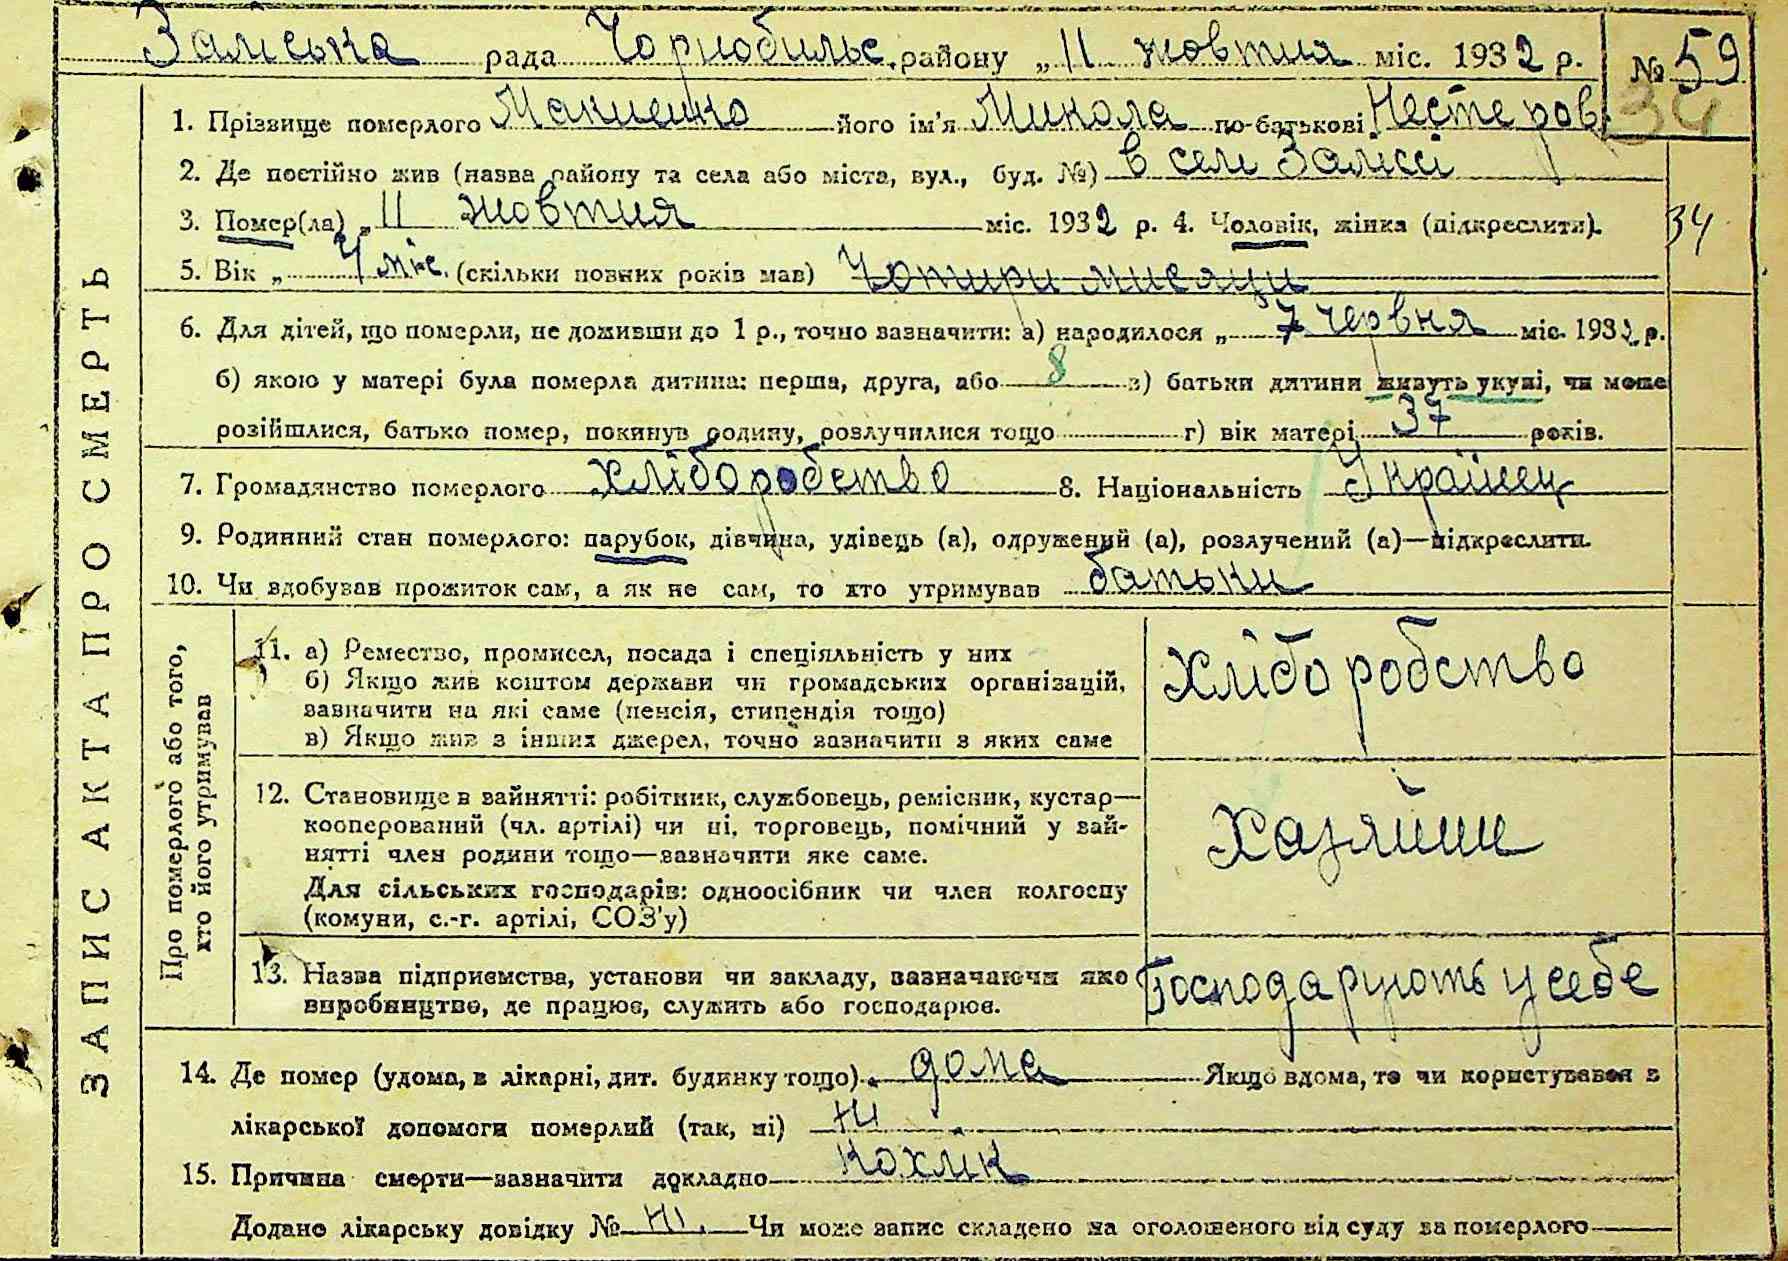 Заліська рада Чорнобильс. району „ 11 жовтня міс. 1932 р. № 59
34
1. Прізвище померлого Макиенко його ім'я Микола по-батькові Нестеров
2. Де постійно жив (назва району та села або міста, вул., буд. №) в селі Заліссі
3. Помер(ла) „ 11 жовтня міс. 1932 р. 4. Чоловік, жінка (підкреслити). 34
5. Вік „ 4 міс. (скільки повних років мав) Чотири мисяци
6. Для дітей, що померли, не доживши до 1 р., точно зазначити: а) народилося „ 7 червня міс. 1932 р.
б) якою у матері була померла дитина: перша, друга, або 8 в) батьки дитини живуть укупі, чи може
розійшлися, батько помер, покинув родину, розлучилися тощо г) вік матері 37 років.
7. Громадянство померлого хліборобство 8. Національність Українец
9. Родинний стан померлого: парубок, дівчина, удівець (а), одружений (а), розлучений (а)—підкреслити.
10. Чи здобував прожиток сам, а як не сам, то хто утримував батьки
ЗАПИС АКТА ПРО СМЕРТЬ
Про померлого або того,
хто його утримував
11. а) Ремество, промисел, посада і спеціяльність у них
б) Якщо жив коштом держави чи громадських організацій,
зазначити на які саме (пенсія, стипендія тощо)
в) Якщо жив з інших джерел, точно зазначити з яких саме
Хліборобство
12. Становище в зайнятті: робітник, службовець, ремісник, кустар—
кооперований (чл. артілі) чи ні, торговець, помічний у зай-
нятті член родини тощо—зазначити яке саме.
Для сільських господарів: одноосібник чи член колгоспу
(комуни, с.-г. артілі, СОЗ'у)
Хазяйини
13. Назва підприємства, установи чи закладу, зазначаючи яке
виробництво, де працює, служить або господарює.
Господарують у себе
14. Де помер (удома, в лікарні, дит. будинку тощо) дома Якщо вдома, то чи користувався з
лікарської допомоги померлий (так, ні) Ні
15. Причина смерти—зазначити докладно Кохлік
Додано лікарську довідку № Ні. Чи може запис складено на оголошеного від суду за померлого